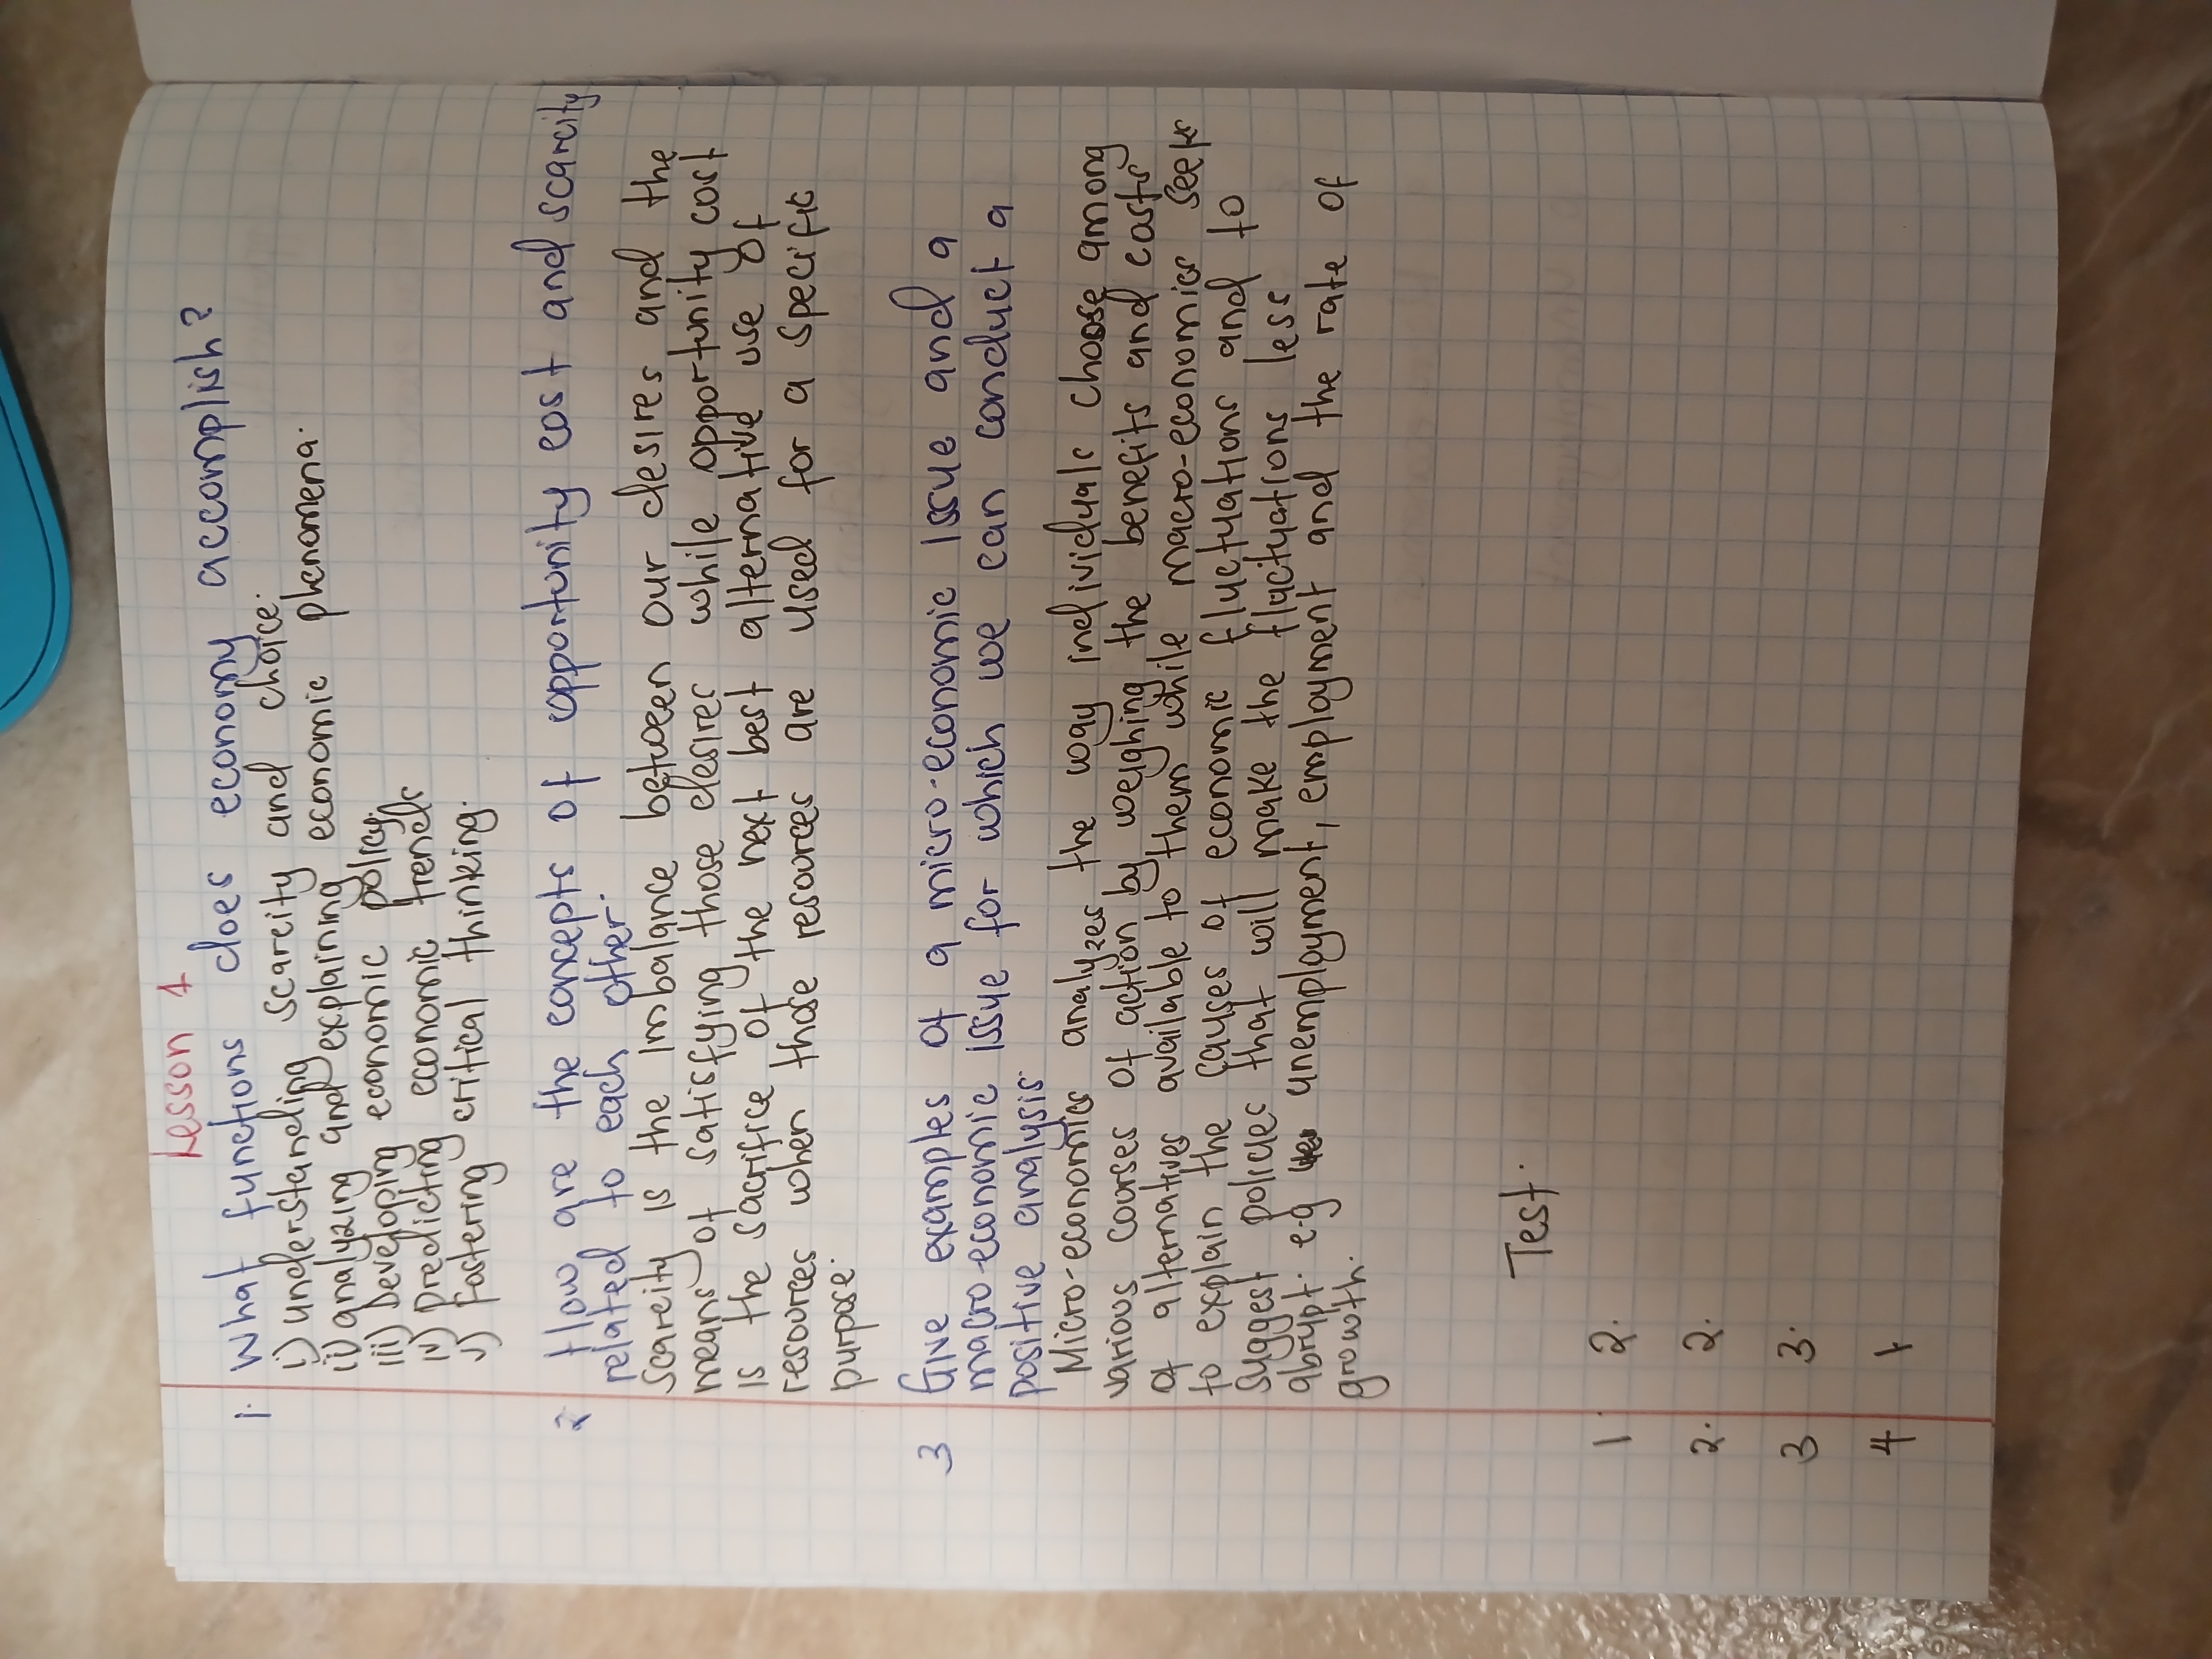 Lesson 1
1. What functions does economy accomplish?
i) understanding scarcity and choice.
ii) analyzing and explaining economic phenomena.
iii) Developing economic policy.
iv) Predicting economic trends
v) Fostering critical thinking.
2 How are the concepts of opportunity cost and scarcity
related to each other.
Scarcity is the imbalance between our desires and the
means of satisfying those desires while opportunity cost
is the sacrifice of the next best alternative use of
resources when those resources are used for a specific
purpose.
3 Give examples of a micro-economic issue and a
macro-economic issue for which we can conduct a
positive analysis
Micro-economics analyzes the way individuals choose among
various courses of action by weighing the benefits and costs
of alternatives available to them while macro-economics seeks
to explain the causes of economic fluctuations and to
suggest policies that will make the fluctuations less
abrupt. e.g unemployment, employment and the rate of
growth.
Test.
1. 2.
2. 2.
3 3.
4 1